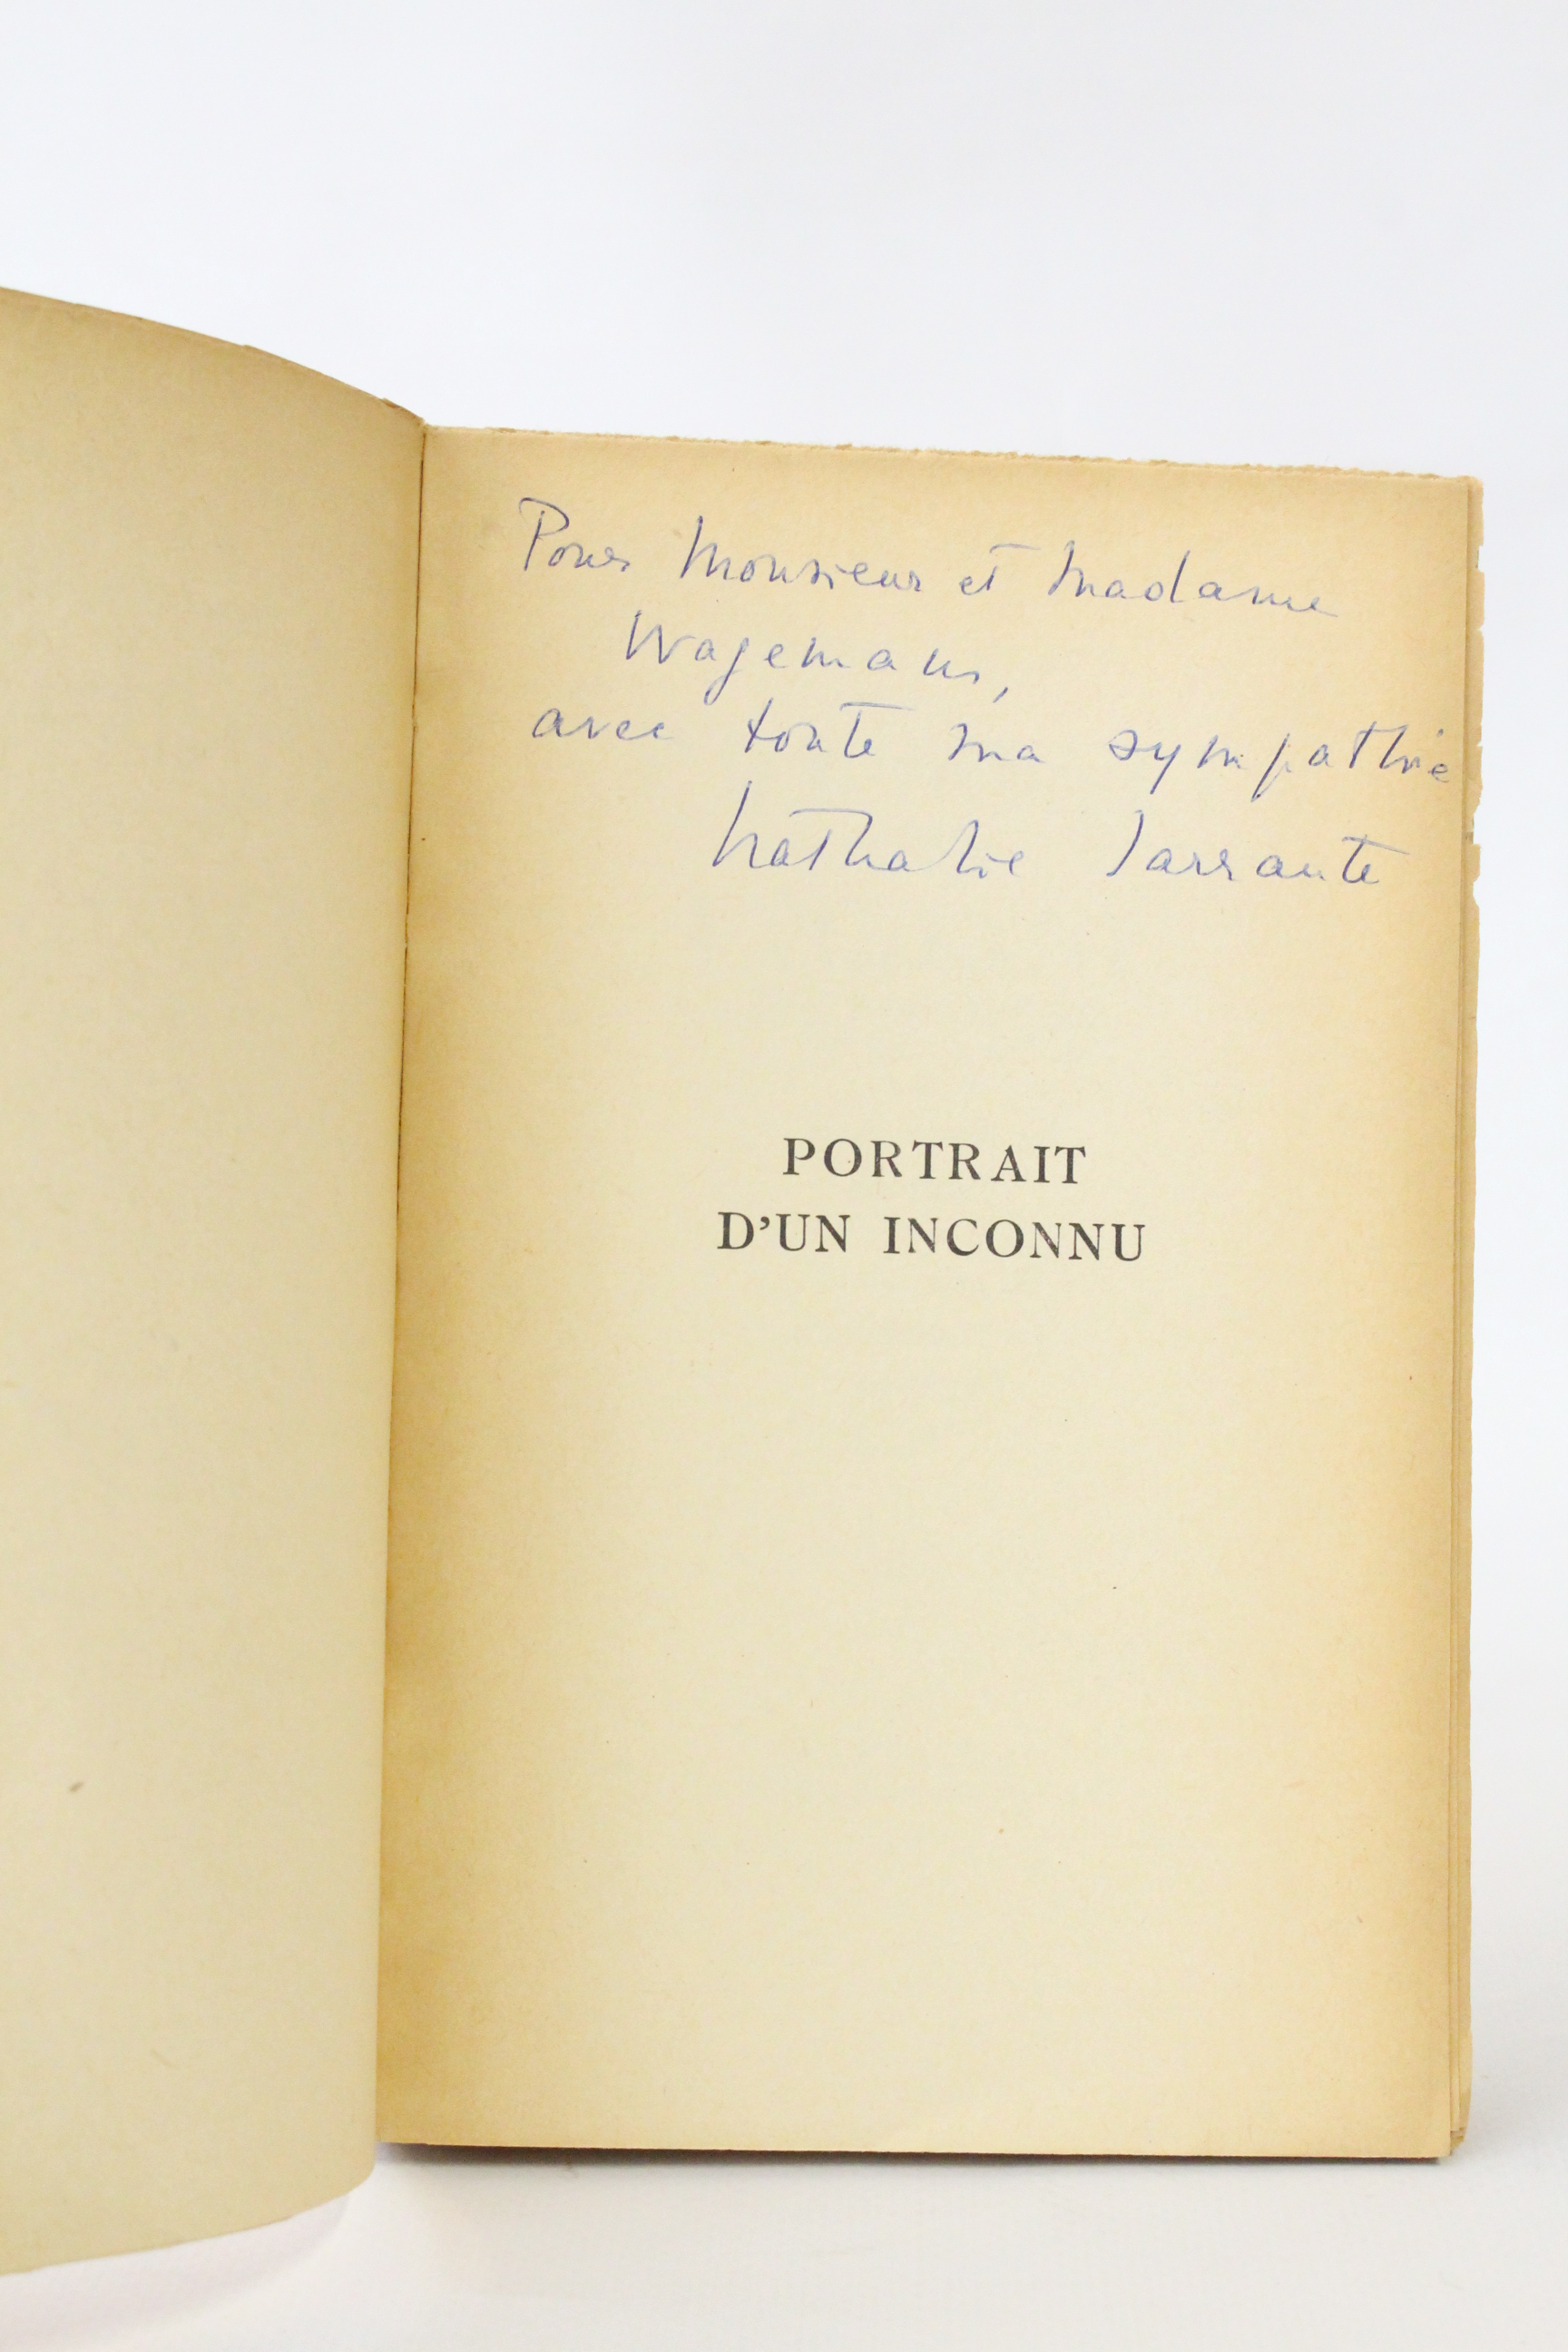 Pour Monsieur et Madame
Wagemans,
avec toute ma sympathie
Nathalie Sarraute
PORTRAIT
D'UN INCONNU